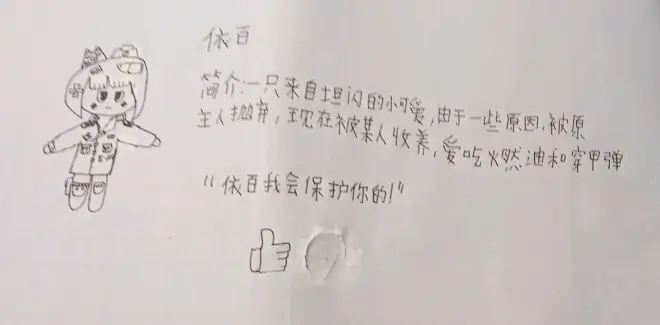 依百
简介:一只来自坦闪的小可爱,由于一些原因,被原
主人抛弃,现在被某人收养,爱吃火然油和穿甲弹
“依百我会保护你的!”